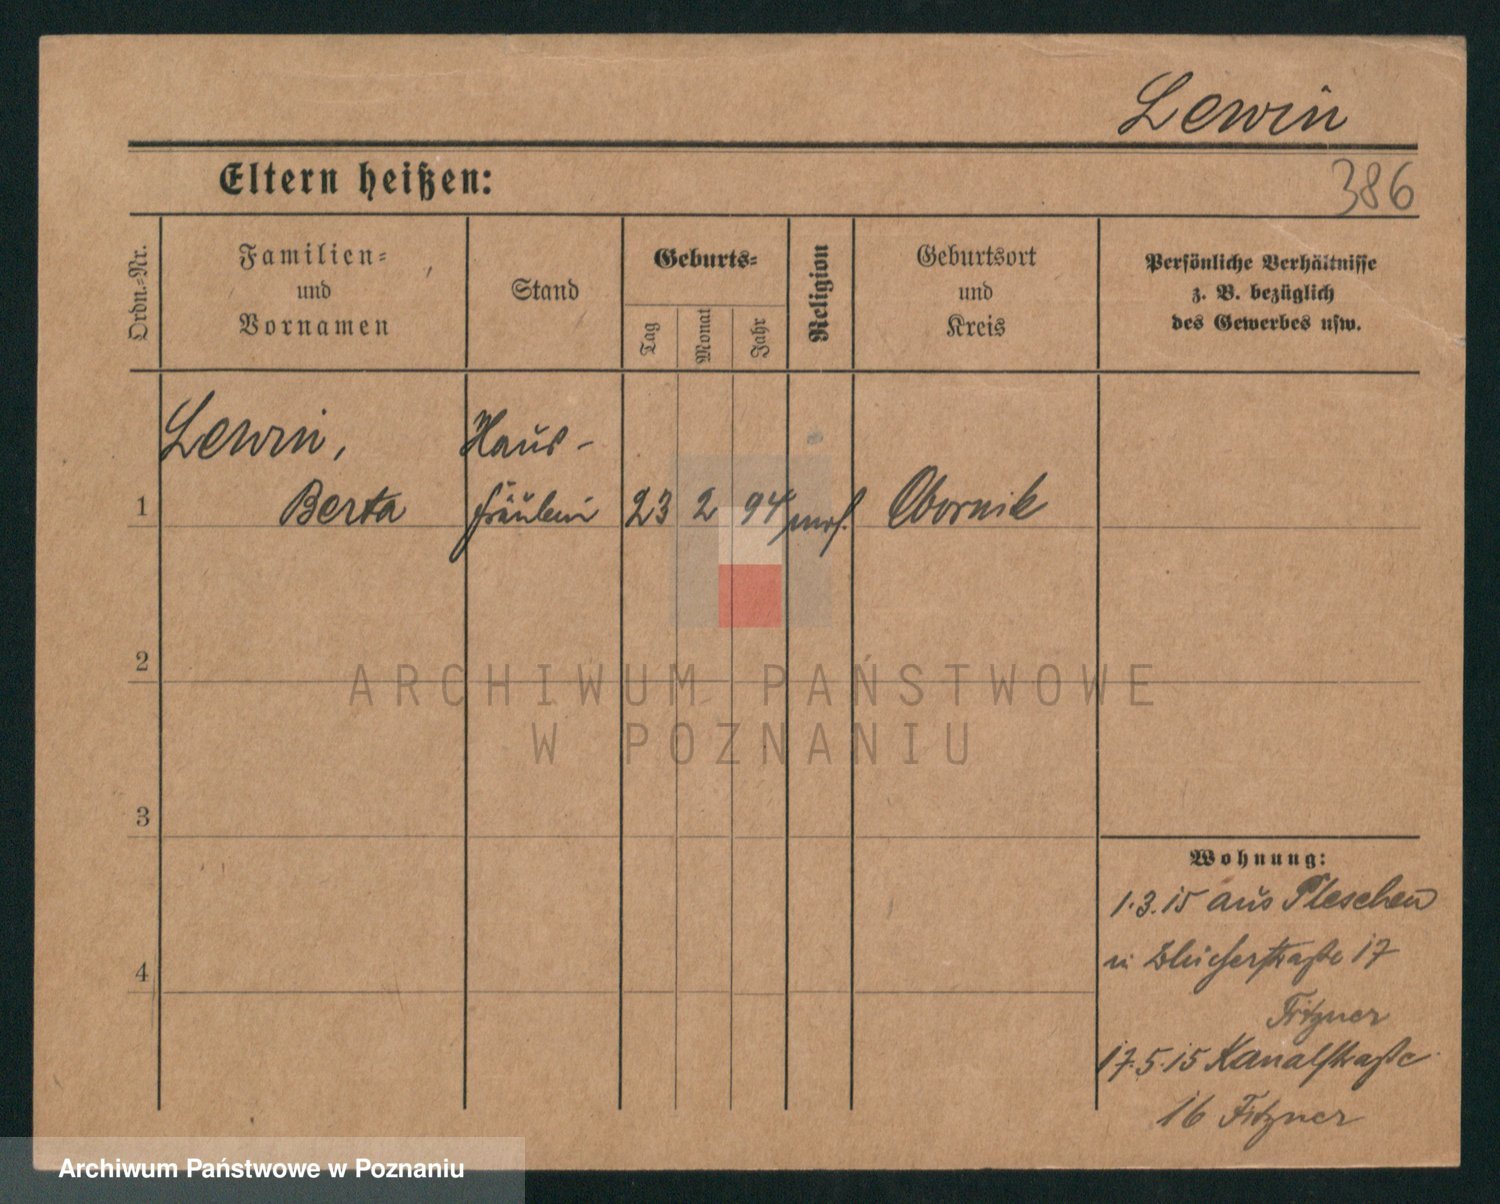 Lewin
Eltern heißen:
386
Ordn.-Nr.
Familien-
und
Vornamen
Stand
Geburts-
Tag
Monat
Jahr
Religion
Geburtsort
und
Kreis
Persönliche Verhältnisse
z. B. bezüglich
des Gewerbes usw.
Lewin,
Haus-
1
Berta
fräulein
23
2
94
mos.
Obornik
2
ARCHIWUM PAŃSTWOWE
W POZNANIU
3
Wohnung:
1.3.15 aus Pleschen
in Blücherstraße 17
4
Fitzner
17.5.15 Kanalstraße
16 Fitzner
Archiwum Państwowe w Poznaniu